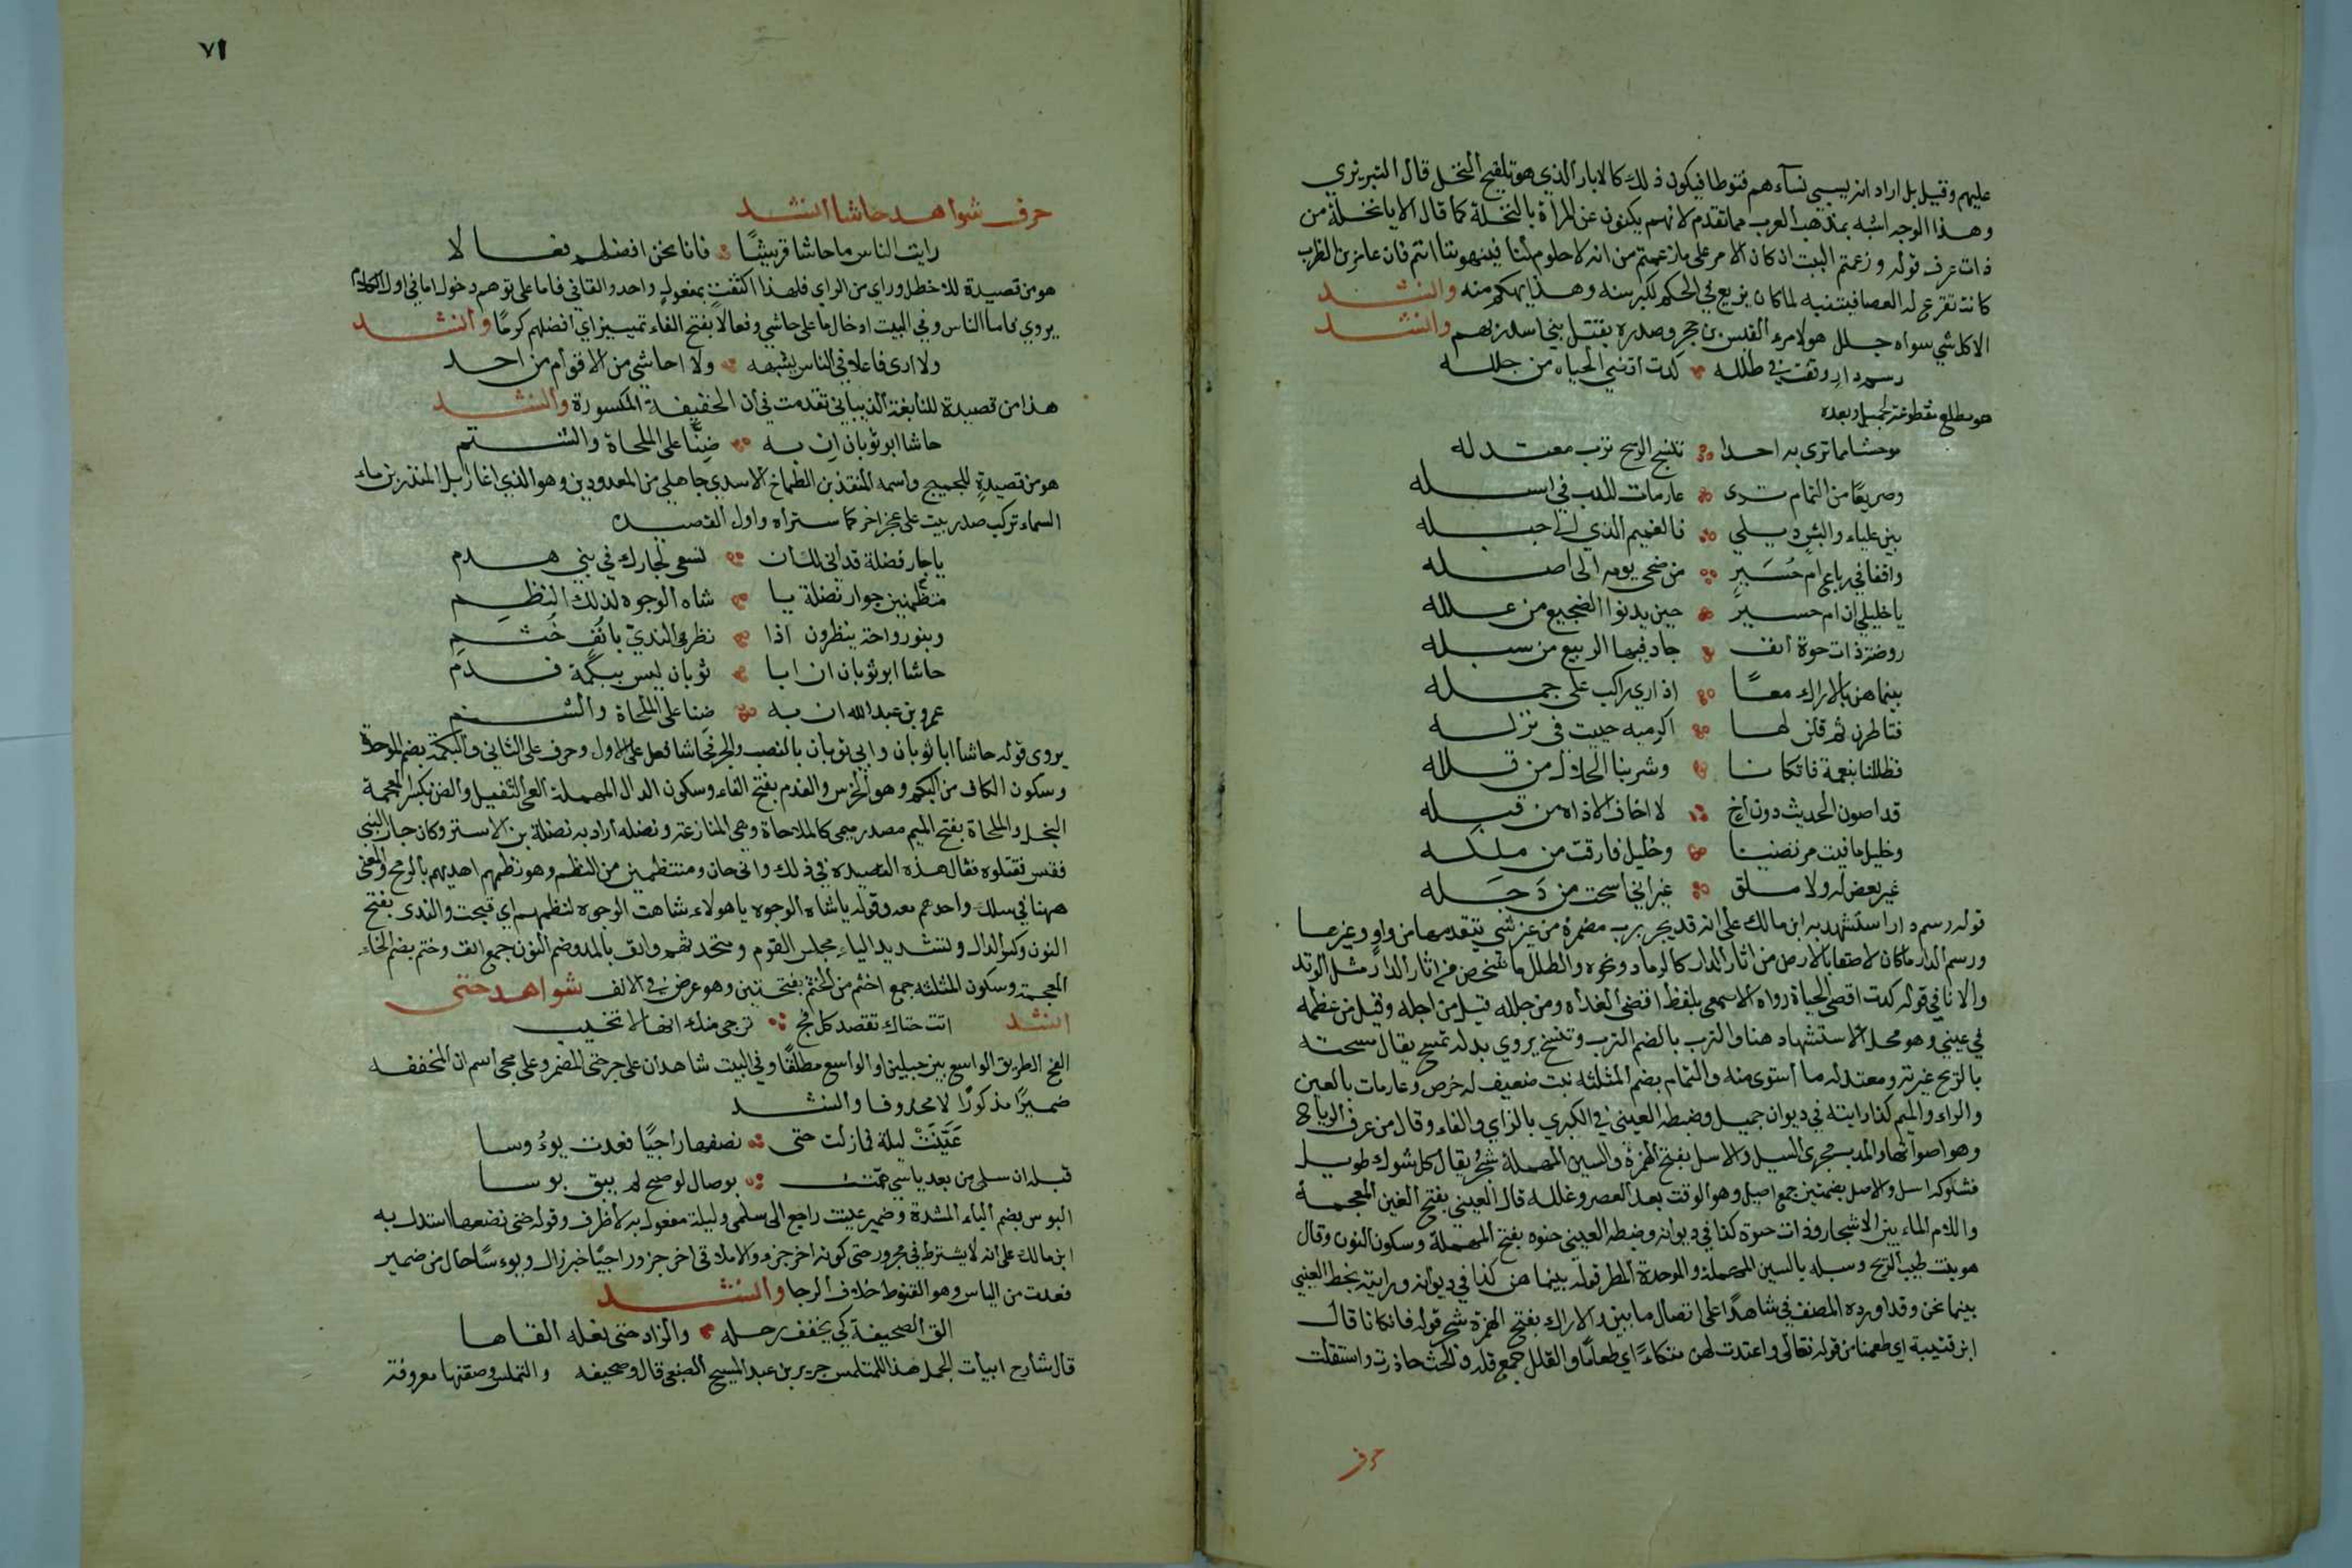 عليهم وقيل بل اراد انه يسبي نسآءهم فتوطا فيكون ذلك كالابار الذي هو تلقيح النخل قال التبريزي
وهذا الوجه اشبه بمذهب العرب مما تقدم لانهم يكنون عن المرأة بالنخلة كما قال الا يا نخلة من
ذات عرق قوله وزعمتم البيت ان كان الامر على ما زعمتم من انه لا حلوم لنا فينهوننا انتم فان عامر بن الظرب
كانت تقرع له العصا فيتنبه لما كان يزيع في الحكم لكبر سنه وهذا تهكم منه وانشد
الا كل شي سواه جلل هو لامرء القيس بن حجر وصدره بقتل بني اسد ربهم وانشد
رسم دار وقفت في طلله كدت اقضي الحياه من جلله
هو مطلع مقطوعة لجميل وبعده
موحشا ما ترى به احدا تنسج الريح ترب معتدله
وصريعًا من الثمام ترى عارمات المدب في اسله
بين علياء وابش ديلي فالغميم الذي الى جبله
واقفا في رباع ام حُسَير من ضحى يومه الى اصله
يا خليلي ان ام حسير حين يدنوا الضجيع من علله
روضة ذات حوة انف جاد فيها الربيع من سبله
بينما هن بالاراك معًا اذ اري راكب على جمله
فتاطرن ثم قلن لها اكرميه حييت في نزله
فظللنا بنعمة فاتكانا وشربنا الحلال من قلله
قد اصون الحديث دون اخ لا اخاف الاذاه من قبله
وخليل صافيت مرتضيا وخليل فارقت من ملله
غير بعض له ولا ملق غير اني اسحت من وَجَله
قوله رسم دار استشهد به ابن مالك على انه قد يجر برب مضمرة من غير شي يتقدمها من واو وغيرها
ورسم الدار ما كان لاصقا بالارض من اثار الدار كالرماد ونحوه والطلل ما شخص من اثار الدار مثل الوتد
والاثافي قوله كدت اقضي الحياة رواه الاصمعي بلفظ اقضي الغداه ومن جلله قيل من اجله وقيل من عظمه
في عيني وهو محل الاستشهاد هنا والترب بالضم الترب وتنسج يروي بدله تمسح يقال مسحته
بالريح غيرته ومعتدله ما استوى منه والثمام بضم المثلثه نبت ضعيف له خوص وعارمات بالعين
والراء والميم كذا رايته في ديوان جميل وضبطه العيني في الكبري بالزاي والفاء وقال من عزف الرياح
وهو اصواتها والمدب مجرى السيل والاسل بفتح الهمزة والسين المهملة شجر يقال كل شوك طويل
فشوكه اسل والاصل بضمتين جمع اصيل وهو الوقت بعد العصر وغلله قال العيني بفتح الغين المعجمة
واللام الماء بين الاشجار وذات حوة كذا في ديوانه وضبطه العيني حنوه بفتح المهملة وسكون النون وقال
هو نبت طيب الريح وسبله بالسين المهملة والموحدة المطر قوله بينما هن كذا في ديوانه ورايته بخط العيني
بينما نحن وقد اورده المصنف في شاهدًا على اتصال ما ببين والاراك بفتح الهمزة شجر قوله فاتكانا قال
ابن قتيبة اي طعمنا من قوله تعالى واعتدت لهن متكاءً اي طعامًا والقلل جمع قله و
حرف
٧١
حرف شواهد حاشا انشد
رايت الناس ما حاشا قريشًا فانا نحن افضلهم فعالا
هو من قصيدة للاخطل وراي من الراي فلهذا اكتفت بمفعول واحد والفا في فانا على توهم دخول اما في اول الكلام
يروي فاما الناس وفي البيت ادخال ما على حاشي وفعالا بفتح الفاء تمييز اي افضلهم كرمًا وانشد
ولا ارى فاعلا في الناس يشبهه ولا احاشي من الاقوام من احد
هذا من قصيدة للنابغة الذبياني تقدمت في ان الخفيفة المكسورة وانشد
حاشا ابو ثوبان ان به ضِنًّا على الملحاة والشتم
هو من قصيدة للجميح واسمه المنقذ بن الطماح الاسدي جاهلي من المعدودين وهو الذي اغار ابل المنذر بن ماء
السماء تركيب صدر بيت على عجز اخر كما ستراه واول القصيده
يا جار فضلة قد انى لك ان تسعى لجارك في بني هدم
منتظمين جوار نضلة يا شاه الوجوه لذلك النظم
وبنو رواحة ينظرون اذا نظر الندي بآنُف خُثم
حاشا ابو ثوبان ان ابا ثوبان ليس ببكمة فدم
عمرو بن عبد الله ان به ضنا على الملحاة والشتم
يروى قوله حاشا ابا ثوبان وابي ثوبان بالنصب والجر فحاشا فعل على الاول وحرف على الثاني والبكمة بضم الموحدة
وسكون الكاف من البكم وهو الخرس والفدم بفتح الفاء وسكون الدال المهملة العي الثقيل والضن بكسر المعجمة
البخل والملحاة بفتح الميم مصدر ميمي كالملاحاة وهي المنازعة ونضله اراد به نضلة بن الاستر وكان جار البني
فقعس فقتلوه فقال هذه القصيده في ذلك وانى حان ومنتظمين من النظم وهو نظمهم اهديهم بالرمح والمعنى
ههنا في سلك واحد هم معه وقوله يا شاه الوجوه يا هولاء شاهت الوجوه لنظمهم اي قبحت والندى بفتح
النون وكسر الدال وتشديد الياء مجلس القوم ومتحدثهم وانف بالمد وضم النون جمع انف وخثم بضم الخاء
المعجمة وسكون المثلثه جمع اخثم من الخثم بفتحتين وهو عرض في الانف شواهد حتى
انشد اتت حتاك تقصد كل فج ترجى منك انها لا تخيب
الفج الطريق الواسع بين جبلين او الواسع مطلقًا وفي البيت شاهدان على جر حتى المضمر وعلى مجي اسم ان المخففه
ضميرًا مذكورًا لا محذوفا وانشد
عَيَّنَتْ ليلة فما زلت حتى نصفها راجيًا فعدت يوءُوسا
قبله ان سلمى من بعد ياسي همت بوصال لو صح لم يبق بوسا
البوس بضم الباء المشدة وضمير عينت راجع الى سلمى وليلة مفعول به لا ظرف وقوله حتى نصفها استدل به
ابن مالك على انه لا يشترط في مجرور حتى كونه اخر جزء والا ملاقي اخر جزء وراجيًا خبر زال ويوءسًا حال من ضمير
فعدت من الياس وهو القنوط خلاف الرجا وانشد
القى الصحيفة كي يخفف رحله والزاد حتى نعله القاها
قال شارح ابيات الجمل هذا للمتلمس جرير بن عبد المسيح الضبعي قال وصحيفه والمتلمس وصفتها معروفة